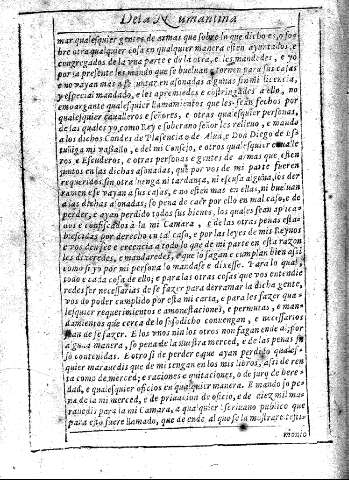 De la Numantina
mar qualesquier gentes de armas que sobre lo que dicho es, o so-
bre otra qualquier cosa en qualquier manera estèn ayuntados, e
congregados de la vna parte e de la otra, e les mandedes, e yo
por la presente les mando que se bueluan e tornen para sus casas
e no vayan mas a se juntar en asonadas algunas sin mi licencia,
y especial mandado, e les apremiedes e costringades a ello, no
enbargante qualesquier llamamientos que les seàn fechos por
qualesquier caualleros e señores, e otras qualesquier personas,
de las quales yo, como Rey e soberano señor les relieuo, e mando
a los dichos Condes de Plasencia, e de Alua, e Don Diego de Estu-
ñiga mi vasallo, e del mi Consejo, e otros qualesquier caualle-
ros, e Escuderos, e otras personas e gentes de armas que estèn
juntos en las dichas asonadas, que por vos de mi parte fueren
requeridos, sin otra luenga ni tardança, ni escusa alguna, los der
ramen e se vayan a sus casas, e no estèn mas en ellas, ni bueluan
a las dichas asonadas, so pena de caer por ello en mal caso, e de
perder, e ayan perdido todos sus bienes, los quales sean aplica-
dos e confiscados à la mi Camara, e de las otras penas esta-
blescidas por derecho en tal caso, e por las leyes de mis Reynos
e vos den fee e creencia a todo lo que de mi parte en esta razon
les dixeredes, e mandaredes, e que lo fagan e cumplan bien asi
como si yo por mi persona lo mandase e dixesse. Para lo qual,
todo e cada cosa de ello, e para las otras cosas que vos entendie
redes ser necessarias de se fazer para derramar la dicha gente,
vos do poder cumplido por esta mi carta, e para les fazer qua-
lesquier requerimientos e amonestacioes, e permutas, e man-
damientos que cerca de lo susodicho conuengan, e necessarios
sean de se fazer. E los vnos nin los otros non fagan ende al, por
alguna manera, so pena de la nuestra merced, e de las penas su
so contenidas. E otro si de perder e que ayan perdido quales-
quier marauedis que de mi tengan en los mis libros, asi de ren
ta como de merced, e raciones e quitaciones, o de juro de here-
dad, e qualesquier oficios en qualquier manera. E mando so pe
na de la mi merced, e de priuacion de oficio, e de diez mil ma-
rauedis para la mi Camara, a qualquier Escriuano publico que
para esto fuere llamado, que de ende al que se la mostrare testi-
monio